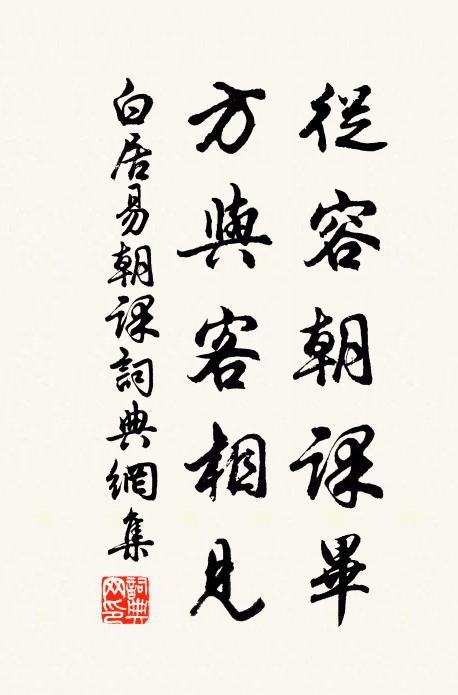 從容朝課畢
方與客相見
白居易朝課詞典網集
詞典
网印